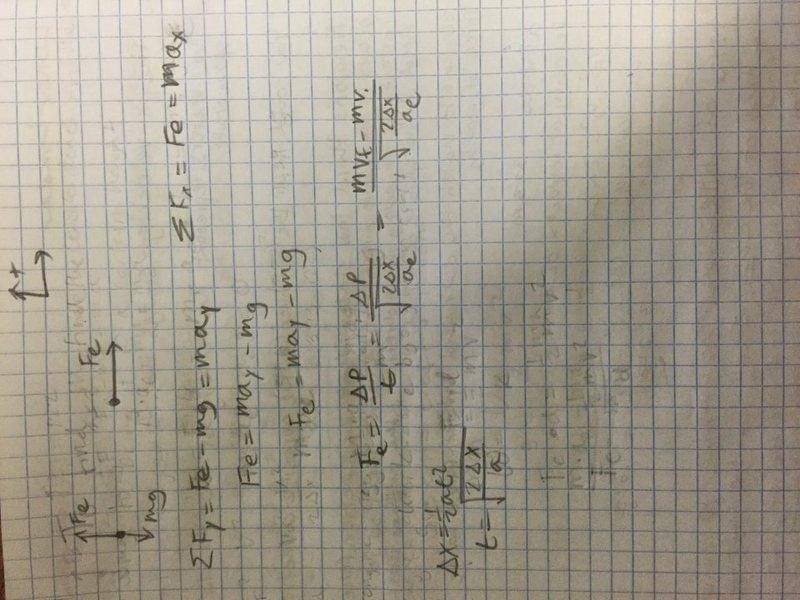 +
Fe
Fe
mg
ΣFy = Fe - mg = may
ΣFx = Fe = max
Fe = may - mg
Fe = may - mg
Fe = ΔP/t = ΔP/√(2Δx/ae) = (mvf - mvi)/√(2Δx/ae)
Δx = 1/2at²
t = √(2Δx/a)